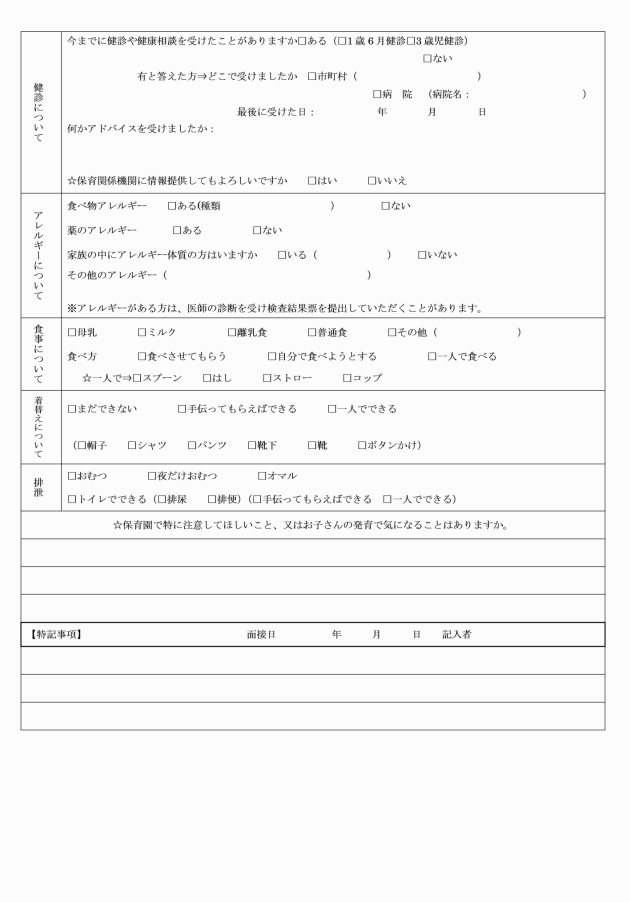 健診について
今までに健診や健康相談を受けたことがありますか□ある（□1歳6月健診□3歳児健診）
□ない
有と答えた方⇒どこで受けましたか　□市町村（　　　　　　　　　　　　）
□病　院　（病院名：　　　　　　　　　　　）
最後に受けた日：　　　　　　年　　　　月　　　　日
何かアドバイスを受けましたか：
☆保育関係機関に情報提供してもよろしいですか　　□はい　　　□いいえ
アレルギーについて
食べ物アレルギー　　□ある(種類　　　　　　　　　　　）　　　　□ない
薬のアレルギー　　　□ある　　　　　□ない
家族の中にアレルギー体質の方はいますか　　□いる（　　　　　　　）　　□いない
その他のアレルギー（　　　　　　　　　　　　　　　　　　　　）
※アレルギーがある方は、医師の診断を受け検査結果票を提出していただくことがあります。
食事について
□母乳　　　　□ミルク　　　　　□離乳食　　　　□普通食　　　　□その他（　　　　　　　　）
食べ方　　　　□食べさせてもらう　　　　□自分で食べようとする　　　　　□一人で食べる
☆一人で⇒□スプーン　　□はし　　　□ストロー　　　□コップ
着替えについて
□まだできない　　　　□手伝ってもらえばできる　　　□一人でできる
（□帽子　　□シャツ　　□パンツ　　□靴下　　　□靴　　　□ボタンかけ）
排泄
□おむつ　　　　□夜だけおむつ　　　　□オマル
□トイレでできる（□排尿　　□排便）（□手伝ってもらえばできる　□一人でできる）
☆保育園で特に注意してほしいこと、又はお子さんの発育で気になることはありますか。
【特記事項】　　　　　　　　　　　　　　　　　面接日　　　　　　年　　　月　　　日　　記入者